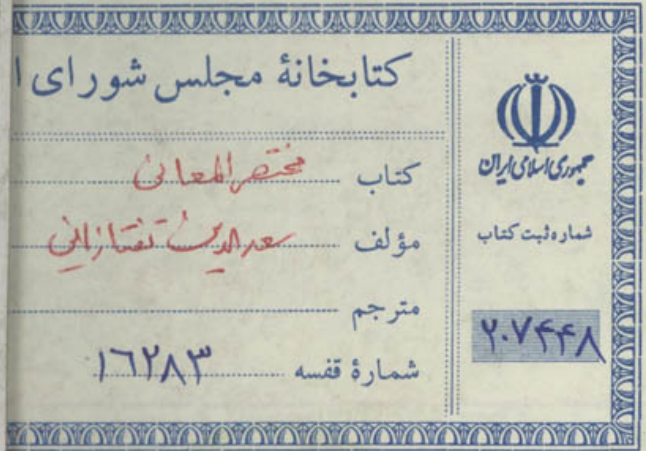 کتابخانهٔ مجلس شورای ا
کتاب مختصر المعانی
مؤلف سعدالدین تفتازانی
مترجم
شمارهٔ قفسه ١٦٢٨٣
جمهوری اسلامی ایران
شماره ثبت کتاب
۲۰۷۴۴۸